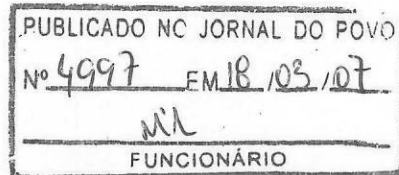 PUBLICADO NO JORNAL DO POVO
Nº 4997 EM 18/03/07
FUNCIONÁRIO